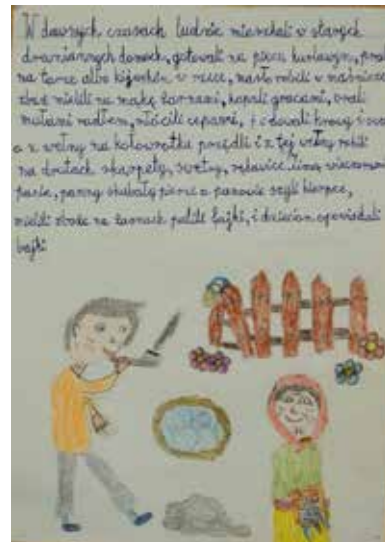 W dawnych czasach ludzie mieszkali w starych
drewnianych domach, gotowali na piecu kaflowym, prali
na tarce albo kijonkom w rzece, masło robili w maśnicze
zboże mielili na mąkę żarnami, kopali gracami, orali
radłem, młócili cepami, hodowali krowy i
a z wełny na kołowrotku przędli i z tej wełny robili
na drutach skarpety, swetry, rękawice, zimą wieczorami
panie, panny skubały pierze a panowie szyli kierpce,
mielili zboże na żarnach palili fajki, i dzieciom opowiadali
bajki